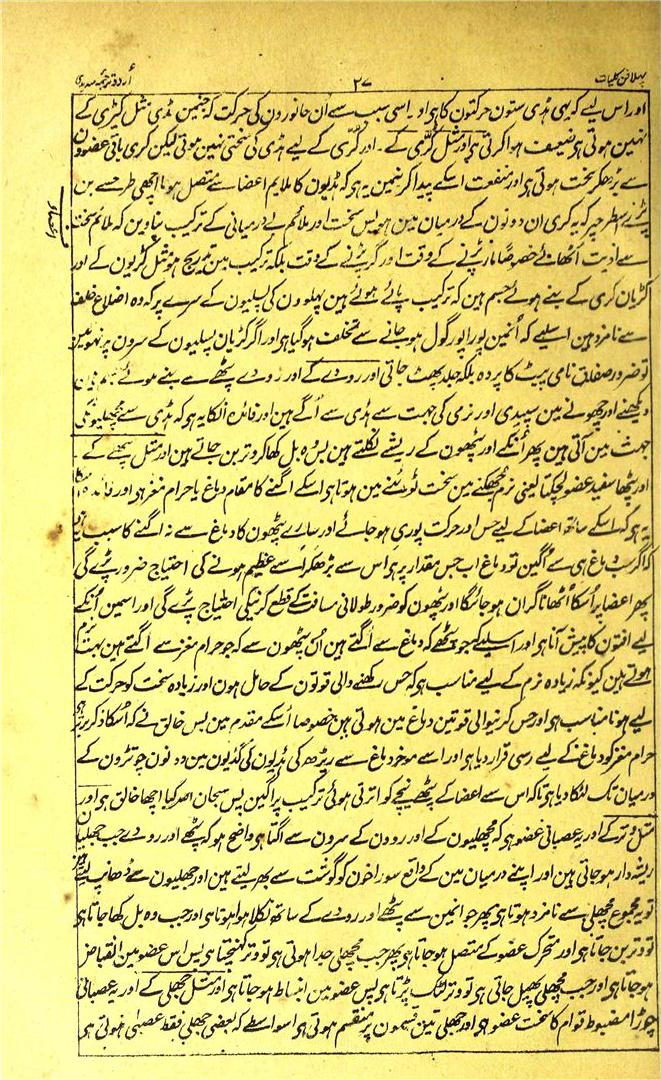 پہلا فن کلیات ۲۷ اُردو ترجمہ سدیدی
اور اس لیے کہ یہی ہڈی ستون حرکتون کا ہی اور اسی سبب سے اُن جانورون کی حرکت کہ جنمین ہڈی مثل کیڑی کے
نہین ہوتی ہی ضعیف ہوا کرتی ہی اور مثل کُرّی کے ۔ اور کُرّی کے لیے ہڈی کی سختی نہین ہوتی لیکن کری باقی عضوون
سے بڑھکر سخت ہوتی ہی اور منفعت اسکے پیدا کرنمین یہ ہو کہ ہڈیون کا ملایم اعضا سے متصل ہونا اچھی طرحسے بن
پڑے اسطرحپر کہ یہ کری ان دونون کے درمیان مین ہو پس سخت اور ملائم بے درمیانی کے ترکیب نپاوین کہ ملائم سخت
سے اذیت اُٹھائے خصوصًا مار پڑنے کے وقت اور گر پڑنے کے وقت بلکہ ترکیب مین تدریج ہو مثل کریون کے اور
کڑیان کری کے بنے ہوئے جسم ہین کہ ترکیب پائے ہوئے ہین پہلوون کی پسلیون کے سرے پر کہ وہ اضلاع خلف
سے نامزد ہین اسلیے کہ اُنمین پورا پورا گول ہو جانے سے تخلف ہو گیا ہی اور اگر کڑیان پسلیون کے سرون پر نہوتین
تو ضرور صفاق نامی پیٹ کا پردہ بلکہ جلد پھٹ جاتی اور رودے کے اور رودے پٹھے سے بنے ہوئے
دیکھنے اور چھونے مین سپیدی اور نرمی کی جہت سے ہڈی سے اُگے ہین اور فائدہ اُنکا یہ ہو کہ ہڈی سے مچھلیونکی
جہت مین آتی ہین پھر اُنکے اور پٹھون کے ریشے نکلتے ہین پس وہ بل کھا کر وتر بن جاتے ہین اور مثل پٹھے کے ۔
اور پٹھا سفید عضو لچکتا یعنی نرم جھکنے مین سخت ٹوٹنے مین ہوتا ہی اسکے اگنے کا مقام دماغ یا حرام مغز ہی اور فائدہ
یہ ہو کہ اسکے ساتھ اعضا کے لیے حس اور حرکت پوری ہو جائے اور سارے پٹھون کا دماغ سے نہ اگنے کا سبب
کہ اگر سب دماغ ہی سے اُگین تو دماغ اب جس مقدار پر ہی اس سے بڑھکر اُسے عظیم ہونے کی احتیاج ضرور پڑے گی
پھر اعضا پر اُسکا اُٹھانا گران ہو جائیگا اور پٹھون کو ضرور طولانی مسافت کے قطع کرنیکی احتیاج پڑے گی اور اسمین اُنکے
لیے افتون کا پیش آنا ہو اور اسلیے کہ جو پٹھے کہ دماغ سے اُگتے ہین اُن پٹھون سے کہ جو حرام مغز سے اگتے ہین بہت نرم
ہوتے ہین کیونکہ زیادہ نرم کے لیے مناسب ہو کہ حس رکھنے والی قوتون کے حامل ہون اور زیادہ سخت کو حرکت کے
لیے ہونا مناسب ہو اور حس کرنیوالی قوتین دماغ مین ہوتی ہین خصوصا اُسکے مقدم مین پس خالق نے کہ اُسکا ذکر برتر ہی
حرام مغز کو دماغ کے لیے رسی قرار دیا ہی اور اسے موخر دماغ سے ریڑھ کی ہڈیون کی گڈیون مین دونون چوتڑون کے
درمیان تک لٹکا دیا ہی تاکہ اس سے اعضا کے پٹھے نیچے کو اترتی ہوئی ترکیب پر اگین پس سبحان اللہ کیا اچھا خالق ہی اور
مثل وتر کے اور یہ عصبانی عضو ہو کہ مچھلیون کے اور رودون کے سرون سے اُگتا ہی واضح ہو کہ پٹھے اور رودے جب چھلیا
ریشہ دار ہو جاتی ہین اور اپنے درمیان مین کے واقع سوراخون کو گوشت سے بھر لیتے ہین اور جھلیون سے ڈھانپ لیتے ہین
تو یہ مجموع مچھلی سے نامزد ہوتا ہی پھر جو انمین سے پٹھے اور رودے کے ساتھ نکلا ہوا ہوتا ہی اور جب وہ بل کھا جاتا ہی
تو وتر بن جاتا ہی اور متحرک عضو کے متصل ہو جاتا ہی پھر جب مچھلی جدا ہوتی ہی تو وتر کھنچتا ہی پس اس عضو مین انقباض
ہو جاتا ہی اور جب مچھلی پھیل جاتی ہی تو وتر لٹک پڑتا ہی پس عضو مین انبساط ہو جاتا ہی اور مثل جھلی کے اور یہ عصبانی
چوڑا مضبوط قوام کا سخت عضو ہی اور جھلی تین قسمون پر منقسم ہوتی ہی اسواسطے کہ بعضی جھلی فقط عصبی ہوتی ہی